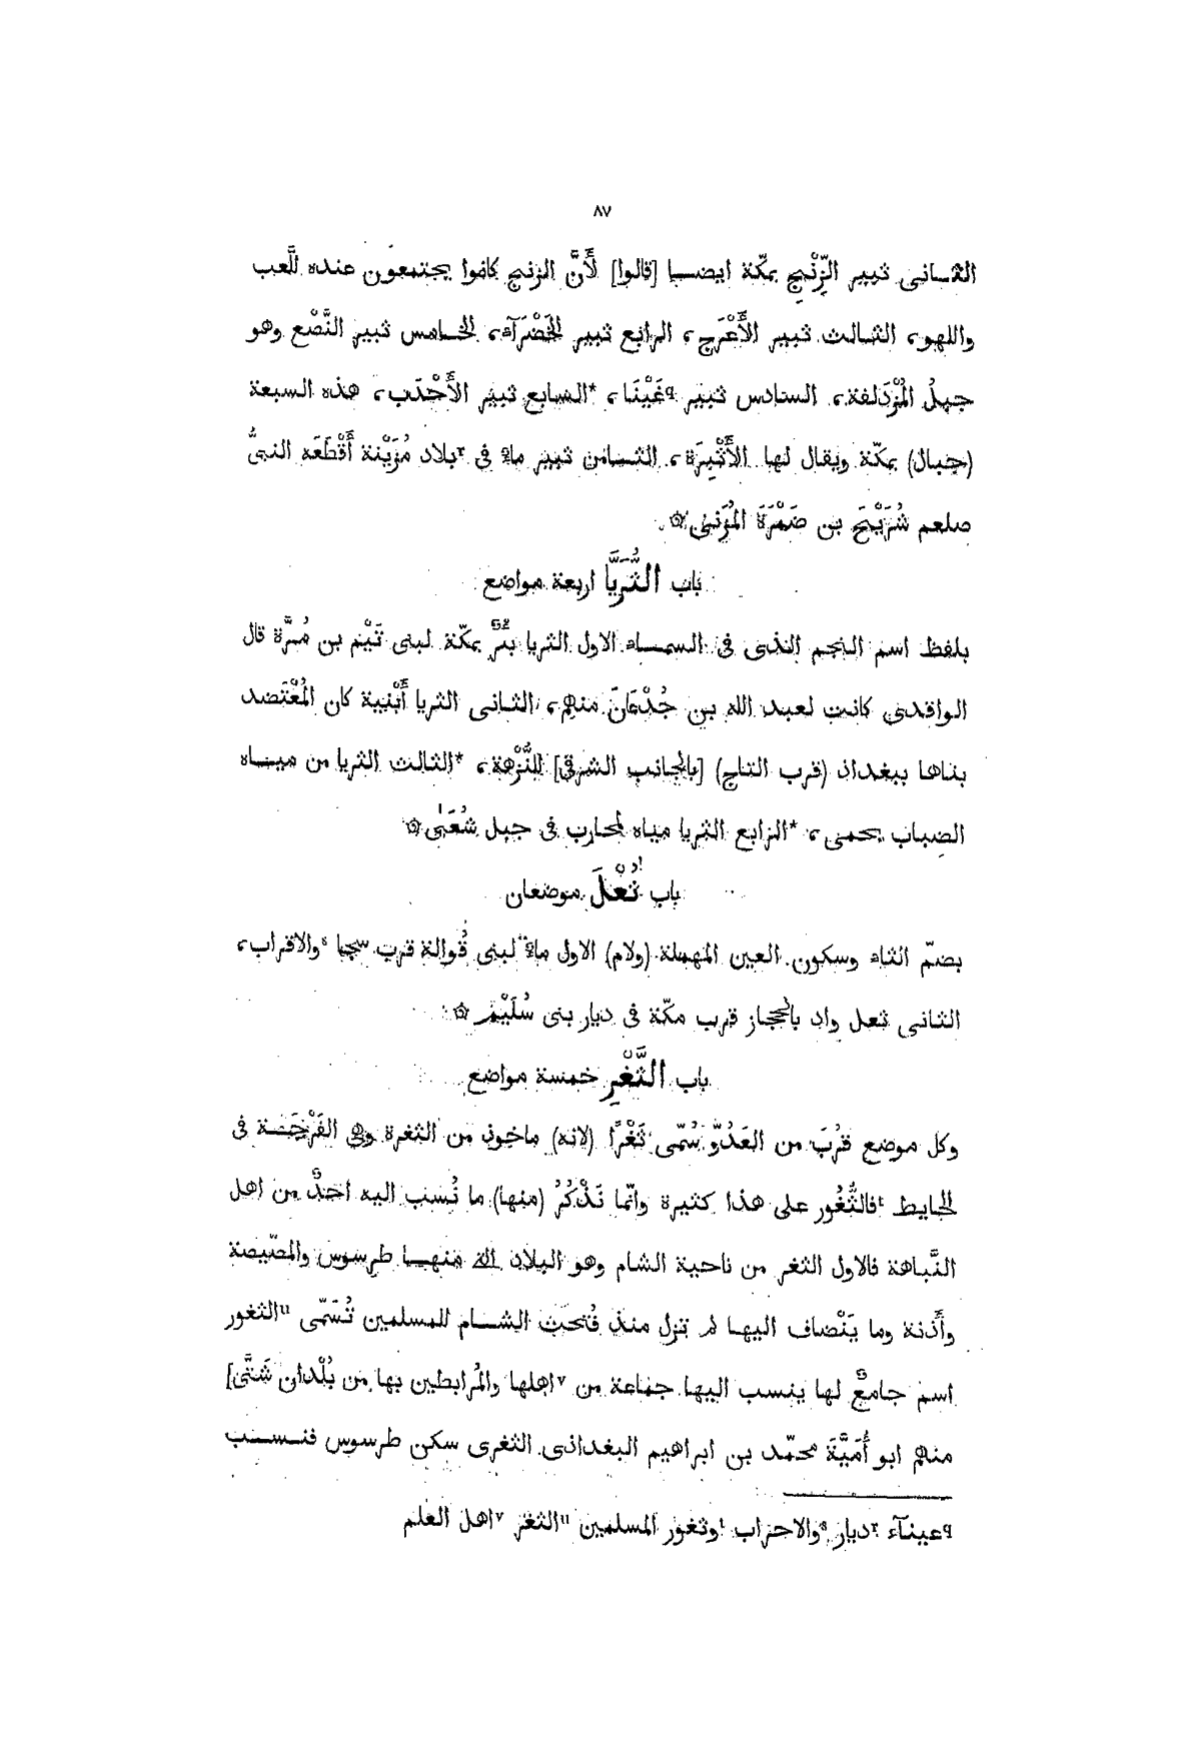 ٨٧
الثاني ثبير الزِّنْجِ بمكّة ايضا [قالوا] لأَنَّ الزنج كانوا يجتمعون عنده للَّعب
واللهو، الثالث ثبير الأَعْرَج، الرابع ثبير الخَضْرَآء، الخامس ثبير النَّصْع وهو
جبلُ المُزْدَلفة، السادس ثبير ٩غَيْنَا، *السابع ثبير الأَحْدَب، هذه السبعة
(جبال) بمكّة ويقال لها الأَثْبِرَة، الثامن ثبير ماء في ٢بلاد مُزَيْنة أَقْطَعَه النبيُّ
صلعم شُرَيْحَ بن ضَمْرَةَ المُزَنى ۞
باب الثُّرَيَّا اربعة مواضع
بلفظ اسم النجم الذى فى السماء الاول الثريا بئرٌ بمكّة لبنى تَيْم بن مُرَّة قال
الواقدى كانت لعبد الله بن جُدْعَانَ منهم، الثانى الثريا أَبْنية كان المُعْتَضد
بناها ببغداد (قرب التاج) [بالجانب الشرق] للنُّزْهة، *الثالث الثريا من مياه
الضباب بحمى، *الرابع الثريا مياه لمحارب فى جبل شُعَبَى ۞
باب ثُعْلَ موضعان
بضمّ الثاء وسكون العين المهملة (ولام) الاول ماء لبنى قُوالة قرب سجا ٥والاقراب،
الثانى ثعل واد بالحجاز قرب مكّة فى ديار بنى سُلَيْم ۞
باب الثَّغْرِ خمسة مواضع
وكل موضع قرُبَ من العَدُوّ سُمّى ثَغْرًا (لانه) ماخوذ من الثغرة وهى الفَرْجَة فى
الحايط ١فالثُّغُور على هذا كثيرة وانّما نَذْكُرُ (منها) ما نُسب اليه احدٌ من اهل
النَّباهة فالاول الثغر من ناحية الشام وهو البلاد التى منها طرسوس والمصّيصة
وأَذنة وما يَنْضاف اليها لم تزل منذ فُتحَت الشام للمسلمين تُسَمّى ١١الثغور
اسم جامعٌ لها ينسب اليها جماعة من ٧اهلها والمُرابطين بها من بُلْدان شَتَّى]
منهم ابو أُمَيَّةَ محمّد بن ابراهيم البغدادى الثغرى سكن طرسوس فنسب
٩عينآء ٢ديار ٥والاحزاب ١وثغور المسلمين ١١الثغر ٧اهل العلم